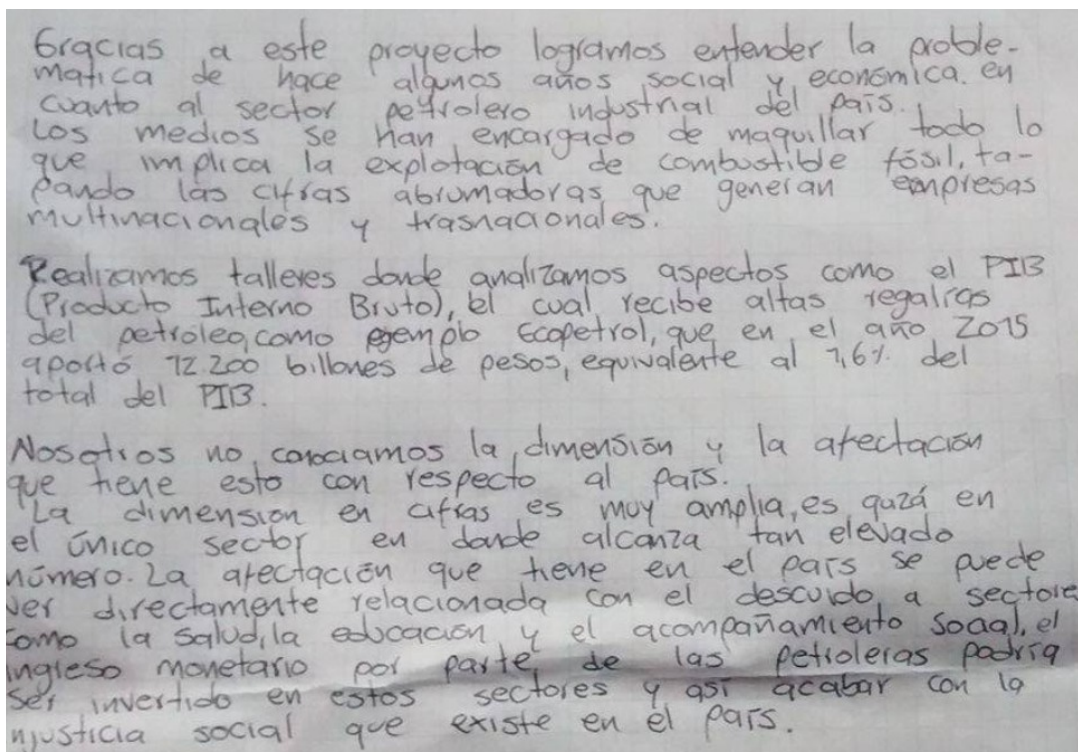 Gracias a este proyecto logramos entender la proble-
matica de hace algunos años social y económica. en
cuanto al sector petrolero industrial del país.
Los medios se han encargado de maquillar todo lo
que implica la explotación de combustible fósil, ta-
pando las cifras abrumadoras que generan empresas
multinacionales y trasnacionales.
Realizamos talleres donde analizamos aspectos como el PIB
(Producto Interno Bruto), el cual recibe altas regalías
del petroleo, como egemplo Ecopetrol, que en el año 2015
aportó 12.200 billones de pesos, equivalente al 1,6% del
total del PIB.
Nosotros no conociamos la dimensión y la afectación
que tiene esto con respecto al país.
La dimension en cifras es muy amplia, es quizá en
el único sector en donde alcanza tan elevado
número. La afectación que tiene en el país se puede
ver directamente relacionada con el descuido a sectore
como la salud, la educación y el acompañamiento social, el
ingreso monetario por parte de las petroleras podría
ser invertido en estos sectores y así acabar con la
njusticia social que existe en el país.